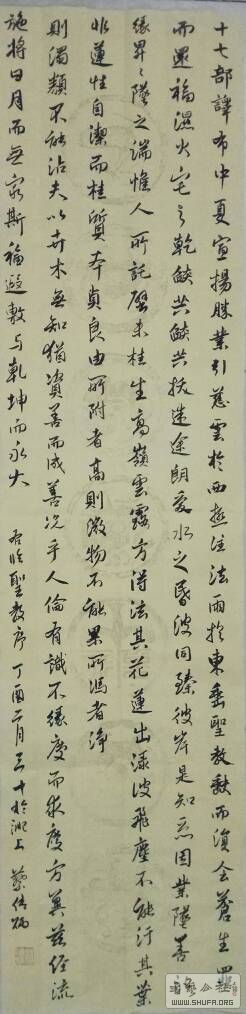 十七部譯布中夏宣揚勝業引慈雲於西極注法雨於東垂聖教缺而復全蒼生罪
而還福濕火宅之乾焰共焰共拔迷途朗愛水之昏波同臻彼岸是知惡因業墜善
緣昇々墜之端惟人所託譬夫桂生高嶺雲露方得泫其花蓮出淥波飛塵不能污其葉
非蓮性自潔而桂質本貞良由所附者高則微物不能累所憑者淨
則濁類不能沾夫以卉木無知猶資善而成善況乎人倫有識不緣慶而求慶方冀茲經流
施將日月而無窮斯福遐敷与乾坤而永大 聖教序 丁酉二月三十於湖上
WWW.SHUFA.ORG